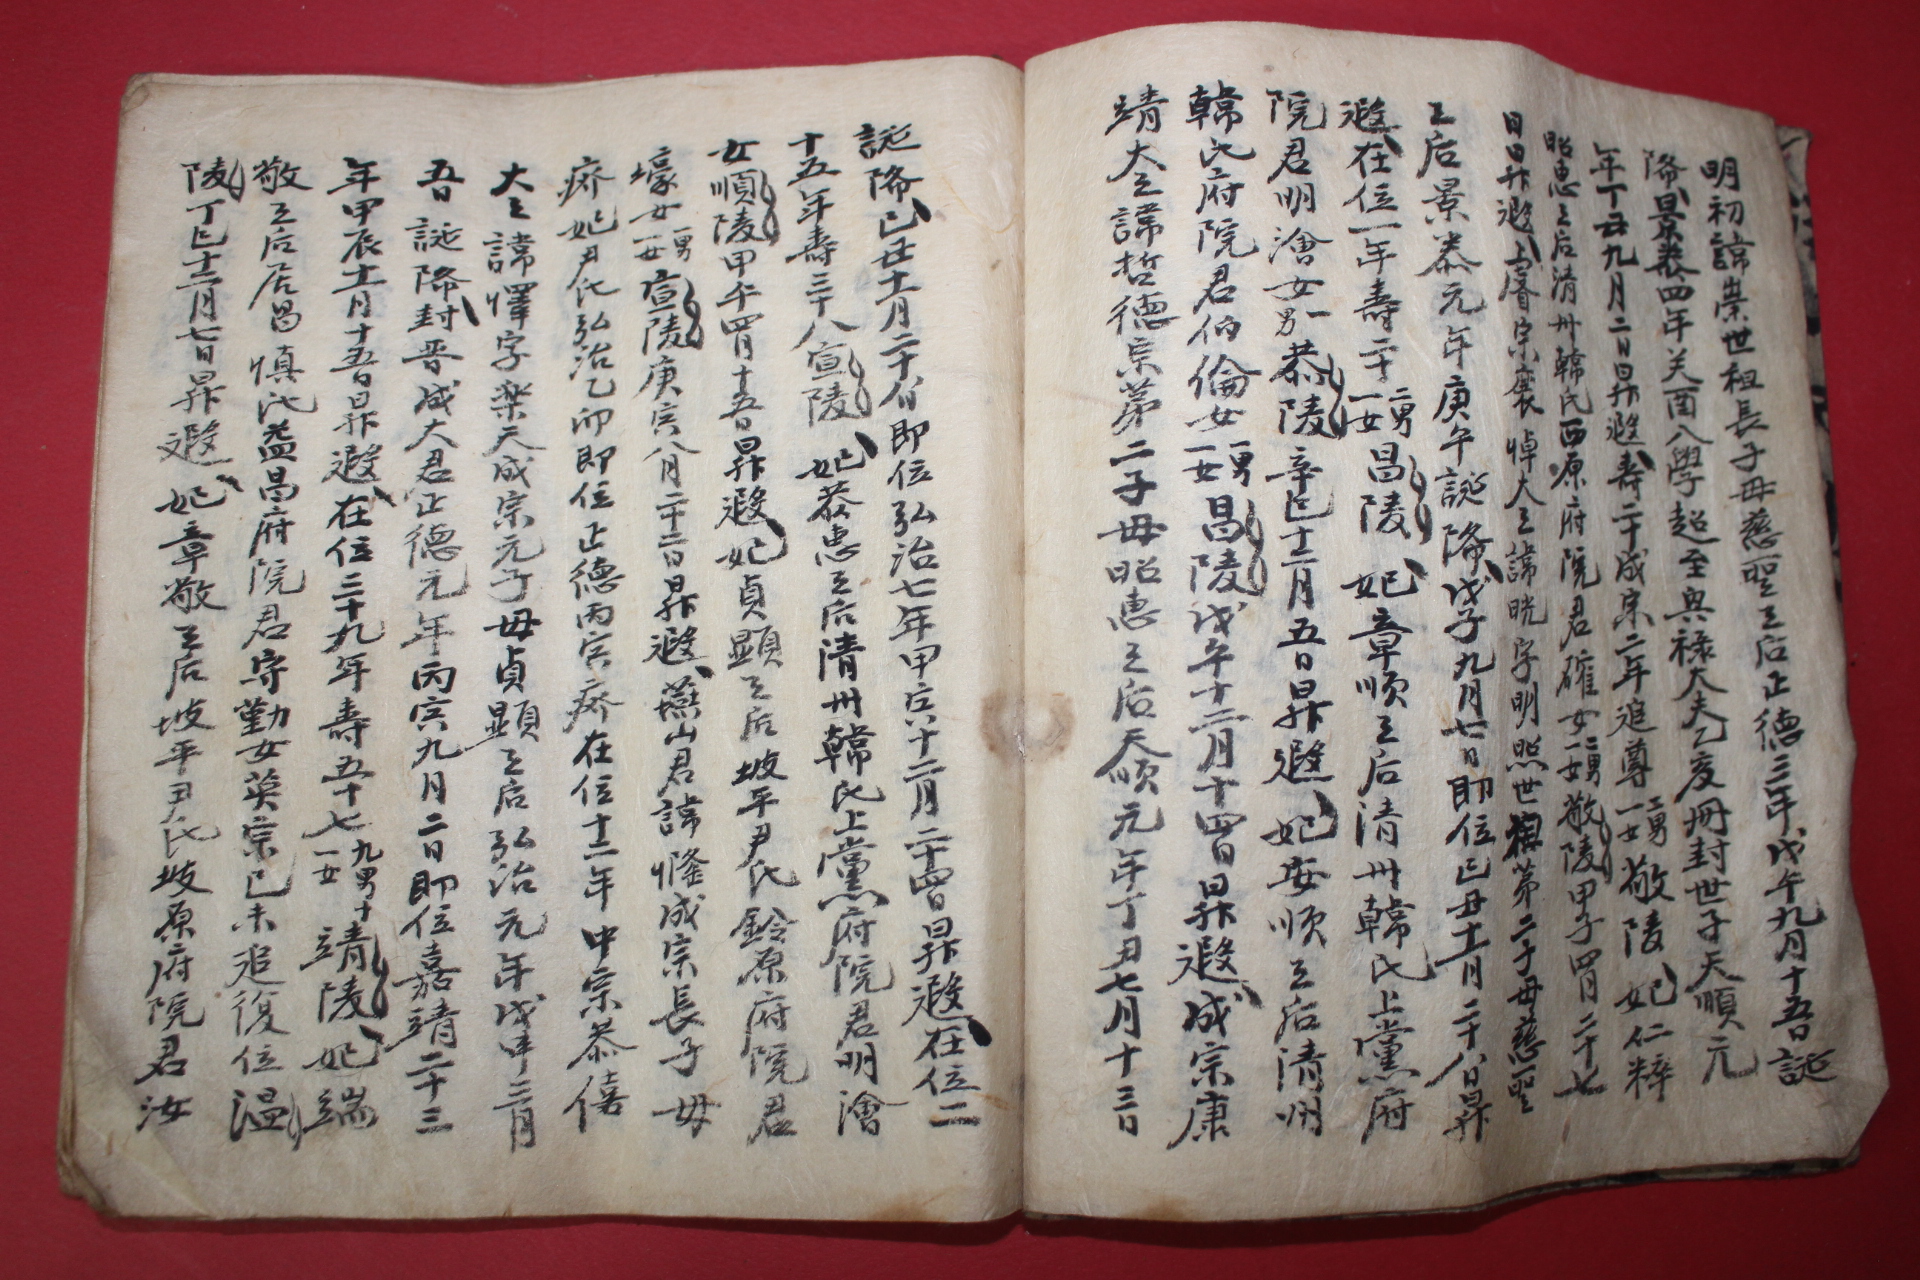 明初諱崇世祖長子母慈聖王后正德三年戊午九月十五日誕
降景泰四年癸酉入學超至興祿大夫乙亥冊封世子天順元
年丁丑九月二日昇遐壽二十成宗二年追尊二男一女敬陵妃仁粹
昭惠王后淸州韓氏西原府院君確女二男一女敬陵甲子四月二十七
日昇遐上睿宗襄悼大王諱晄字明照世祖第二子母慈聖
王后景泰元年庚午誕降戊子九月七日即位己丑十一月二十八日昇
遐在位一年壽二十二男一女昌陵妃章順王后淸州韓氏上黨府
院君明澮女一男恭陵辛巳十二月五日昇遐妃安順王后淸州
韓氏府院君伯倫女一男一女昌陵戊午十二月十四日昇遐成宗康
靖大王諱哲德宗第二子母昭惠王后天順元年丁丑七月十三日
誕降己丑十一月二十八日即位弘治七年甲寅十二月二十四日昇遐在位二
十五年壽三十八宣陵妃恭惠王后淸州韓氏上黨府院君明澮
女順陵甲午四月十五日昇遐妃貞顯王后坡平尹氏鈴原府院君
壕女一男一女宣陵庚寅八月二十二日昇遐燕山君諱㦕成宗長子母
廢妃尹氏弘治乙卯即位正德丙寅廢在位十二年中宗恭僖
大王諱懌字樂天成宗元子母貞顯王后弘治元年戊申三月
五日誕降封晋成大君正德元年丙寅九月二日即位嘉靖二十三
年甲辰十一月十五日昇遐在位三十九年壽五十七九男十一女靖陵妃端
敬王后居昌愼氏益昌府院君守勤女英宗己未追復位溫
陵丁巳十二月七日昇遐妃章敬王后坡平尹氏坡原府院君汝